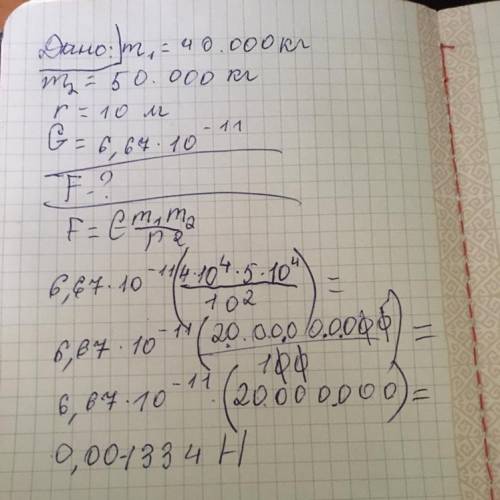 Дано: m₁ = 40.000 кг
m₂ = 50.000 кг
r = 10 м
G = 6,67 · 10⁻¹¹
F - ?
F = G m₁m₂ / r²
6,67 · 10⁻¹¹ (4·10⁴ · 5·10⁴ / 10²) =
6,67 · 10⁻¹¹ (20.00.00.00.00 / 100) =
6,67 · 10⁻¹¹ · (20.000.000) =
0,001334 Н